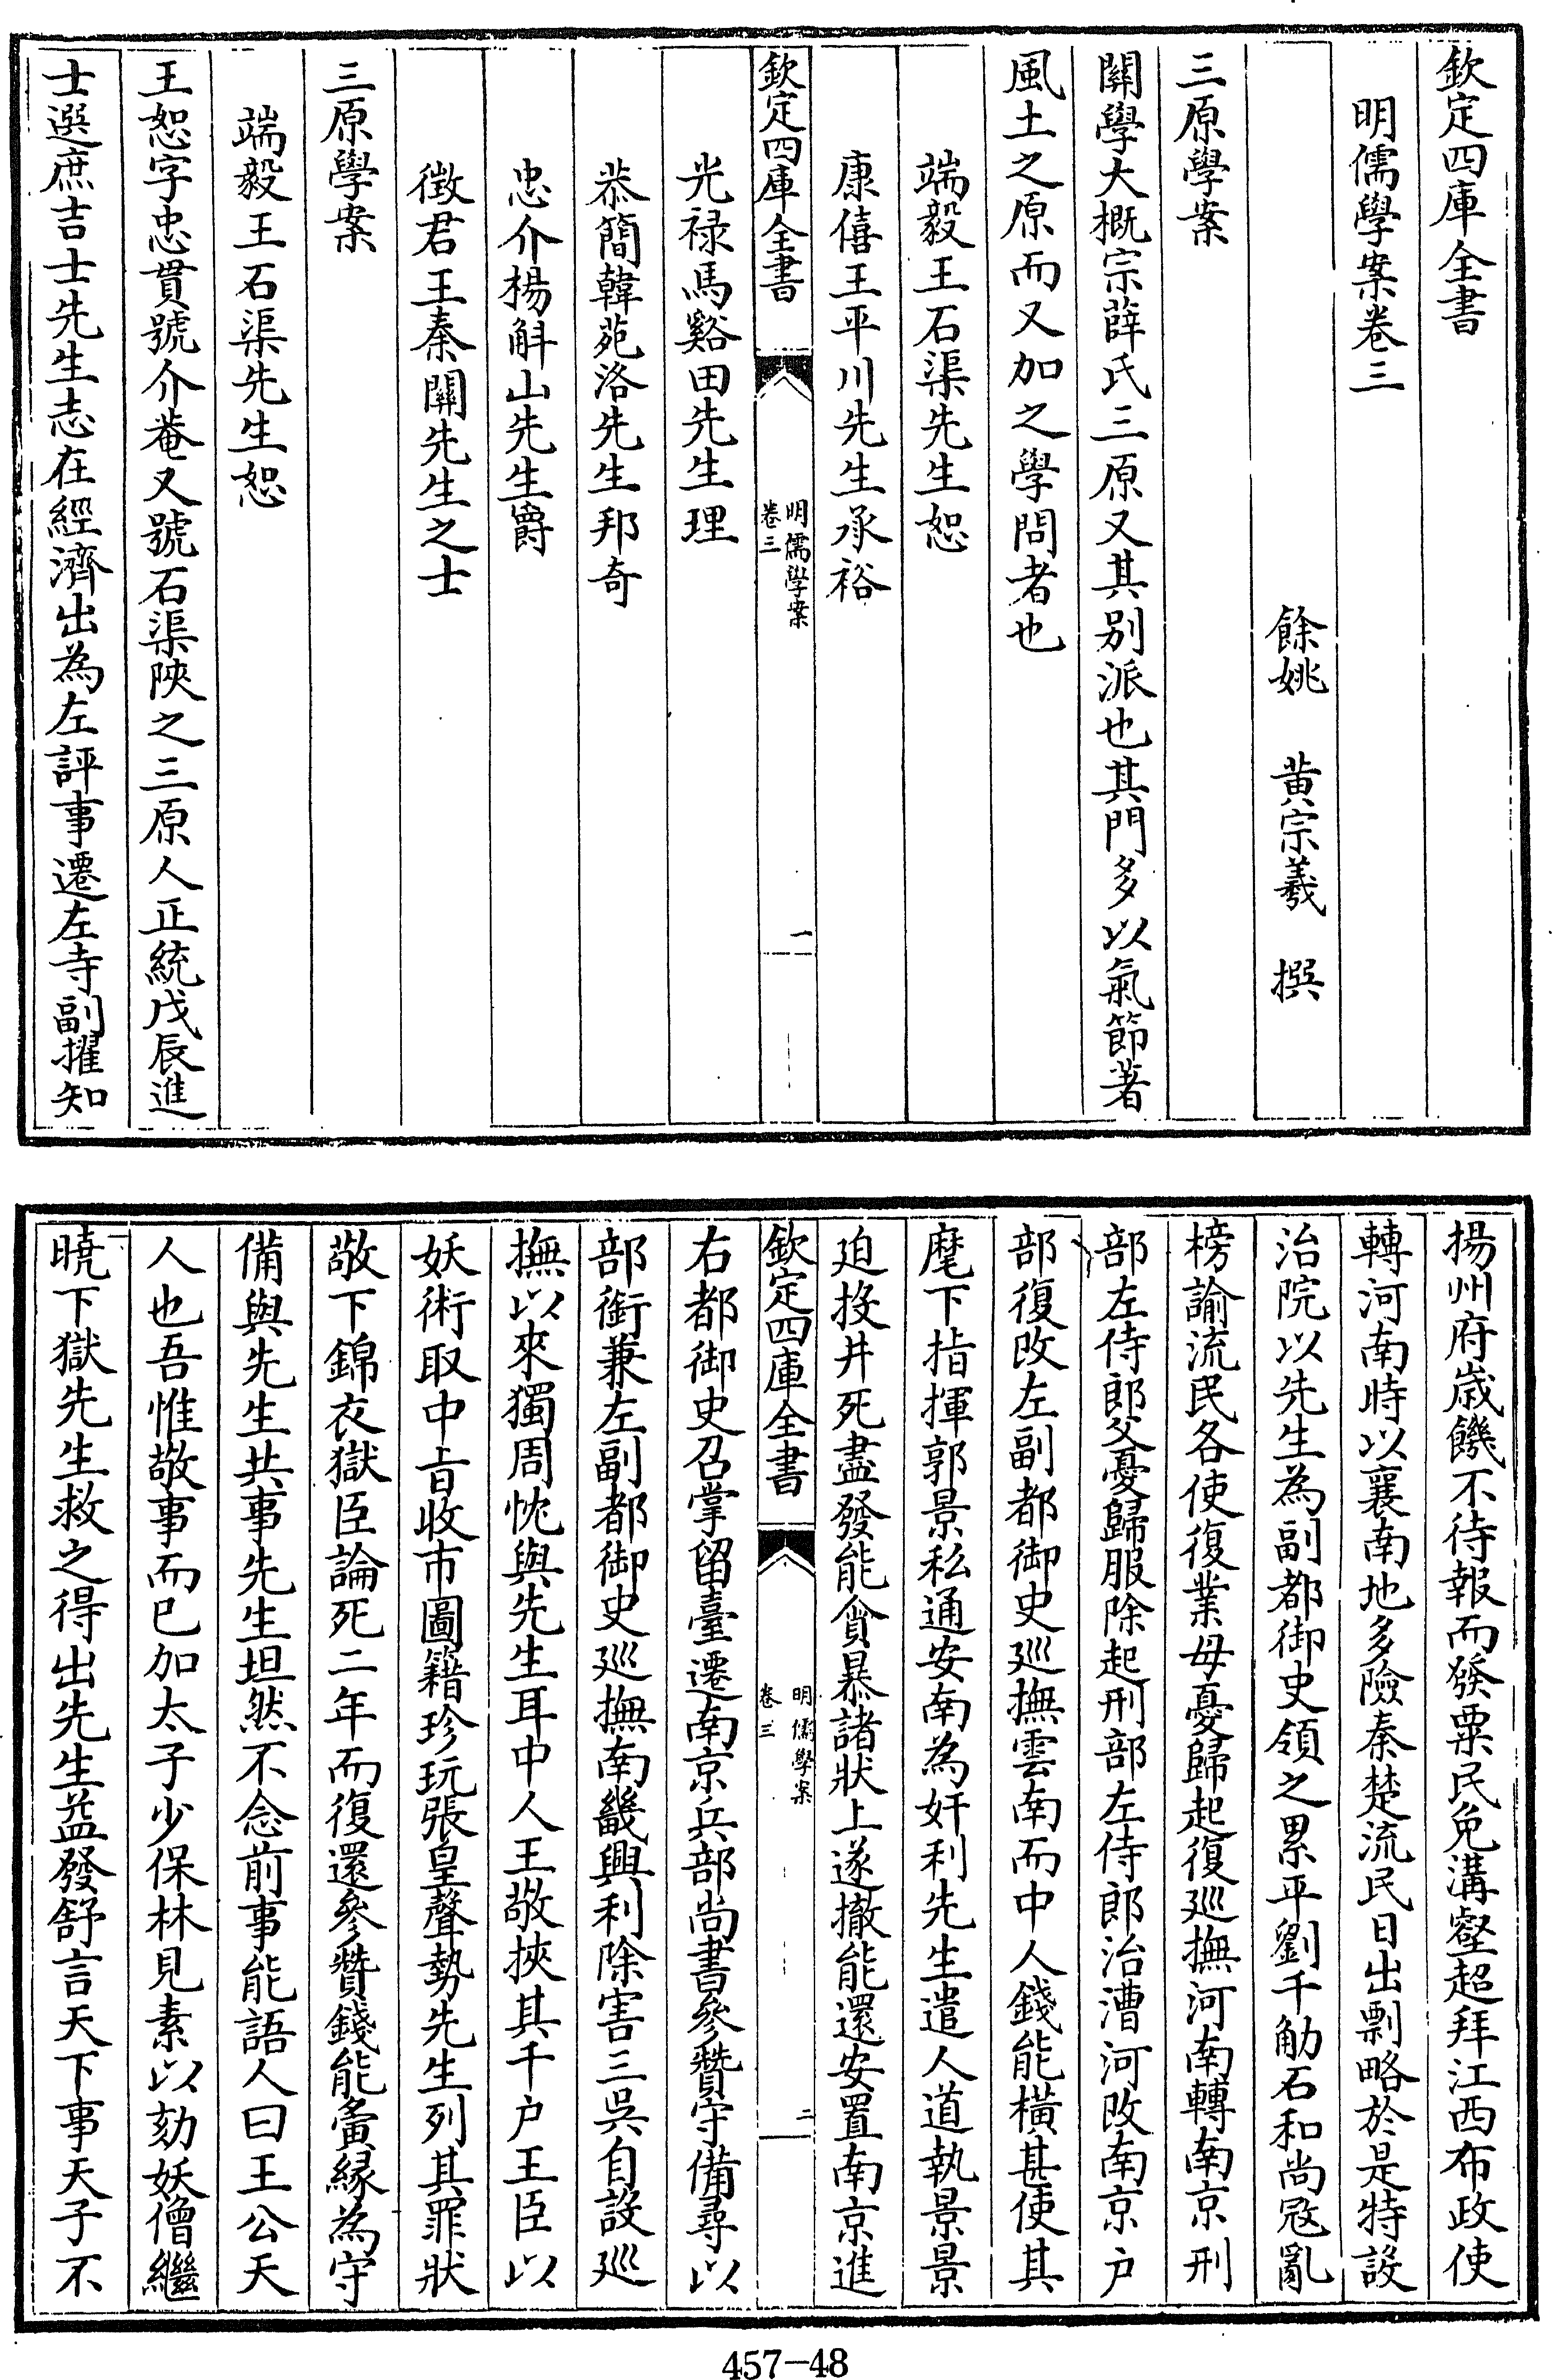 欽定四庫全書
明儒學案卷三
餘姚 黄宗羲 撰
三原學案
關學大概宗薛氏三原又其别派也其門多以氣節著
風土之厚而又加之學問者也
端毅王石渠先生恕
康僖王平川先生承裕
欽定四庫全書 明儒學案 卷三 一
光禄馬谿田先生理
恭簡韓苑洛先生邦奇
忠介楊斛山先生爵
徵君王秦關先生之士
三原學案
端毅王石渠先生恕
王恕字忠貫號介菴又號石渠陜之三原人正統戊辰進
士選庶吉士先生志在經濟出為左評事遷左寺副擢知
揚州府歲饑不待報而發粟民免溝壑超拜江西布政使
轉河南時以襄南地多險秦楚流民日出剽略於是特設
治院以先生為副都御史領之累平劉千觔石和尚冦亂
榜諭流民各使復業母憂歸起復廵撫河南轉南京刑
部左侍郎父憂歸服除起刑部左侍郎治漕河改南京户
部復改左副都御史廵撫雲南而中人錢能横甚使其
麾下指揮郭景私通安南為奸利先生遣人道執景景
迫投井死盡發能貪暴諸狀上遂撤能還安置南京進
欽定四庫全書 明儒學案 卷三 二
右都御史召掌留臺遷南京兵部尚書參贊守備尋以
部銜兼左副都御史廵撫南畿興利除害三吳自設廵
撫以來獨周忱與先生耳中人王敬挾其千户王臣以
妖術取中㫖收市圖籍珍玩張皇聲勢先生列其罪狀
敬下錦衣獄臣論死二年而復還參贊錢能夤縁為守
備與先生共事先生坦然不念前事能語人曰王公天
人也吾惟敬事而已加太子少保林見素以劾妖僧繼
曉下獄先生救之得出先生益發舒言天下事天子不
457-48